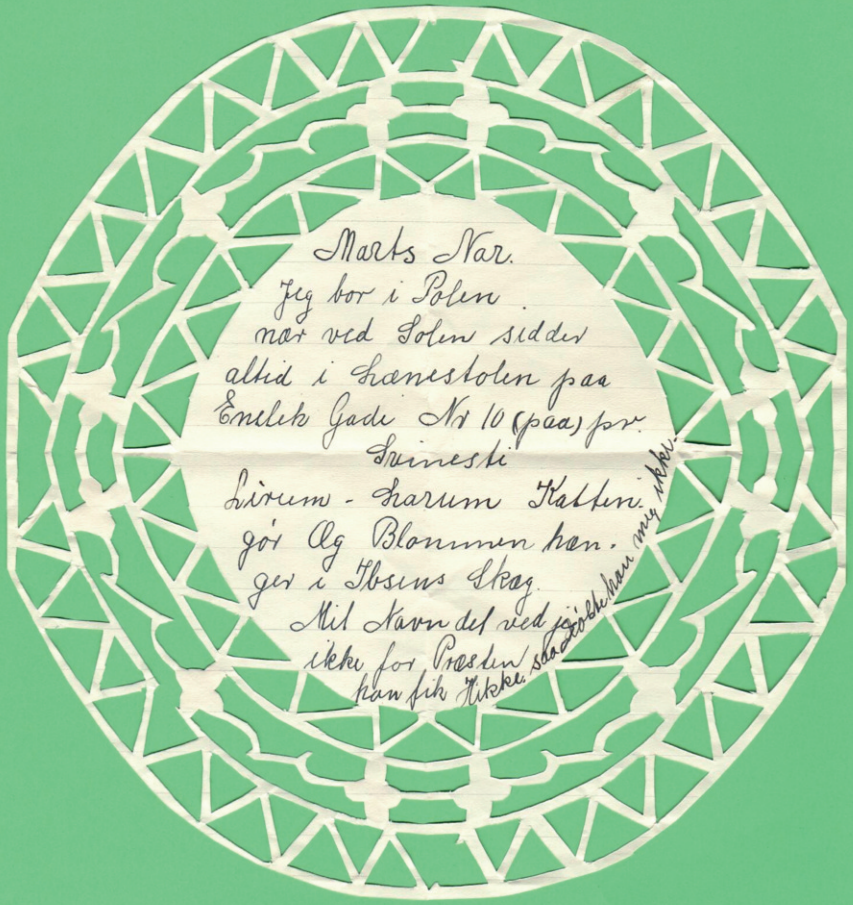 Marts Nar.
Jeg bor i Polen.
nær ved Solen sidder
altid i Lænestolen paa
Enelek Gade Nr 10 (paa) pr.
Svinesti
Lirum - Larum Katten.
gör Æg Blommen hæn.
ger i Ibsens Skæg.
Mit Navn det ved jeg
ikke for Præsten
han fik Hikke. saa döbte han mig ikke.